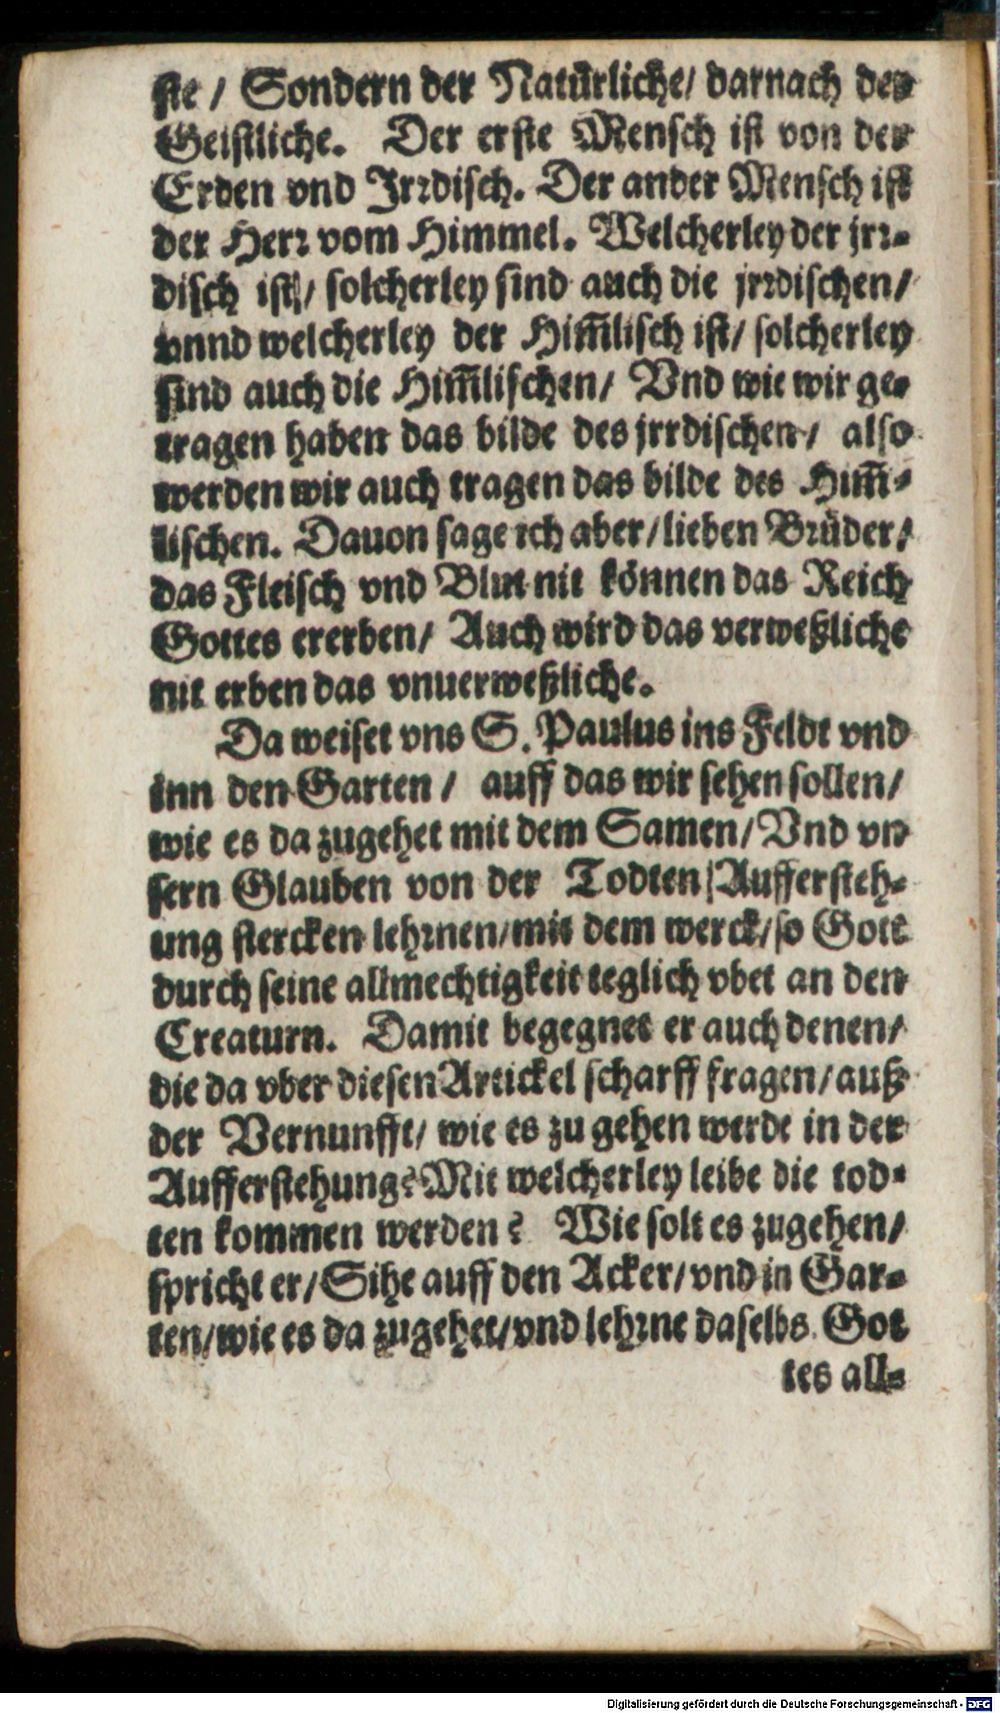 ste / Sondern der Natürliche / darnach der
Geistliche. Der erste Mensch ist von der
Erden vnd Jrrdisch. Der ander Mensch ist
der Herr vom Himmel. Welcherley der jrr-
disch ist / solcherley sind auch die jrrdischen /
vnnd welcherley der Him̃lisch ist / solcherley
sind auch die Him̃lischen / Vnd wie wir ge-
tragen haben das bilde des jrrdischen / also
werden wir auch tragen das bilde des Him̃-
lischen. Dauon sage ich aber / lieben Brüder /
das Fleisch vnd Blut nit können das Reich
Gottes ererben / Auch wird das verweßliche
nit erben das vnuerweßliche.
Da weiset vns S. Paulus ins Feldt vnd
inn den Garten / auff das wir sehen sollen /
wie es da zugehet mit dem Samen / Vnd vn
sern Glauben von der Todten Auffersteh-
ung stercken lehrnen / mit dem werck / so Gott
durch seine allmechtigkeit teglich vbet an den
Creaturn. Damit begegnet er auch denen /
die da vber diesen Artickel scharff fragen / auß
der Vernunfft / wie es zu gehen werde in der
Aufferstehung? Mit welcherley leibe die tod-
ten kommen werden? Wie solt es zugehen /
spricht er / Sihe auff den Acker / vnd in Gar-
ten / wie es da zugehet / vnd lehrne daselbs Got
tes all-
Digitalisierung gefördert durch die Deutsche Forschungsgemeinschaft - DFG